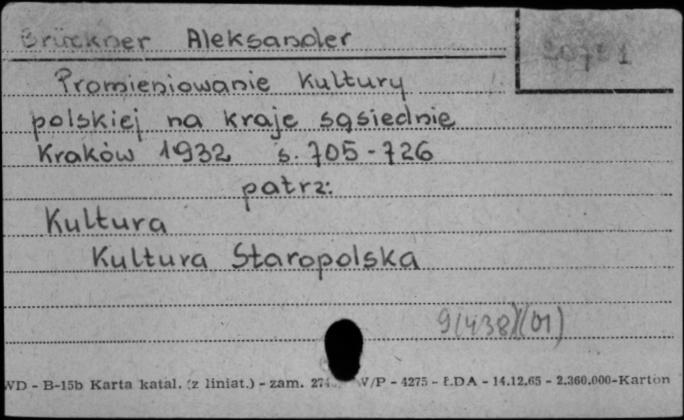 Brückner Aleksander
Promieniowanie Kultury
polskiej na kraje sąsiednie
Kraków 1932 s. 705-726
patrz:
Kultura
Kultura Staropolska
9(438)(01)
WD - B-15b Karta katal. (z liniat.) - zam. V/P - 4275 - Ł.DA - 14.12.65 - 2.360.000-Karton